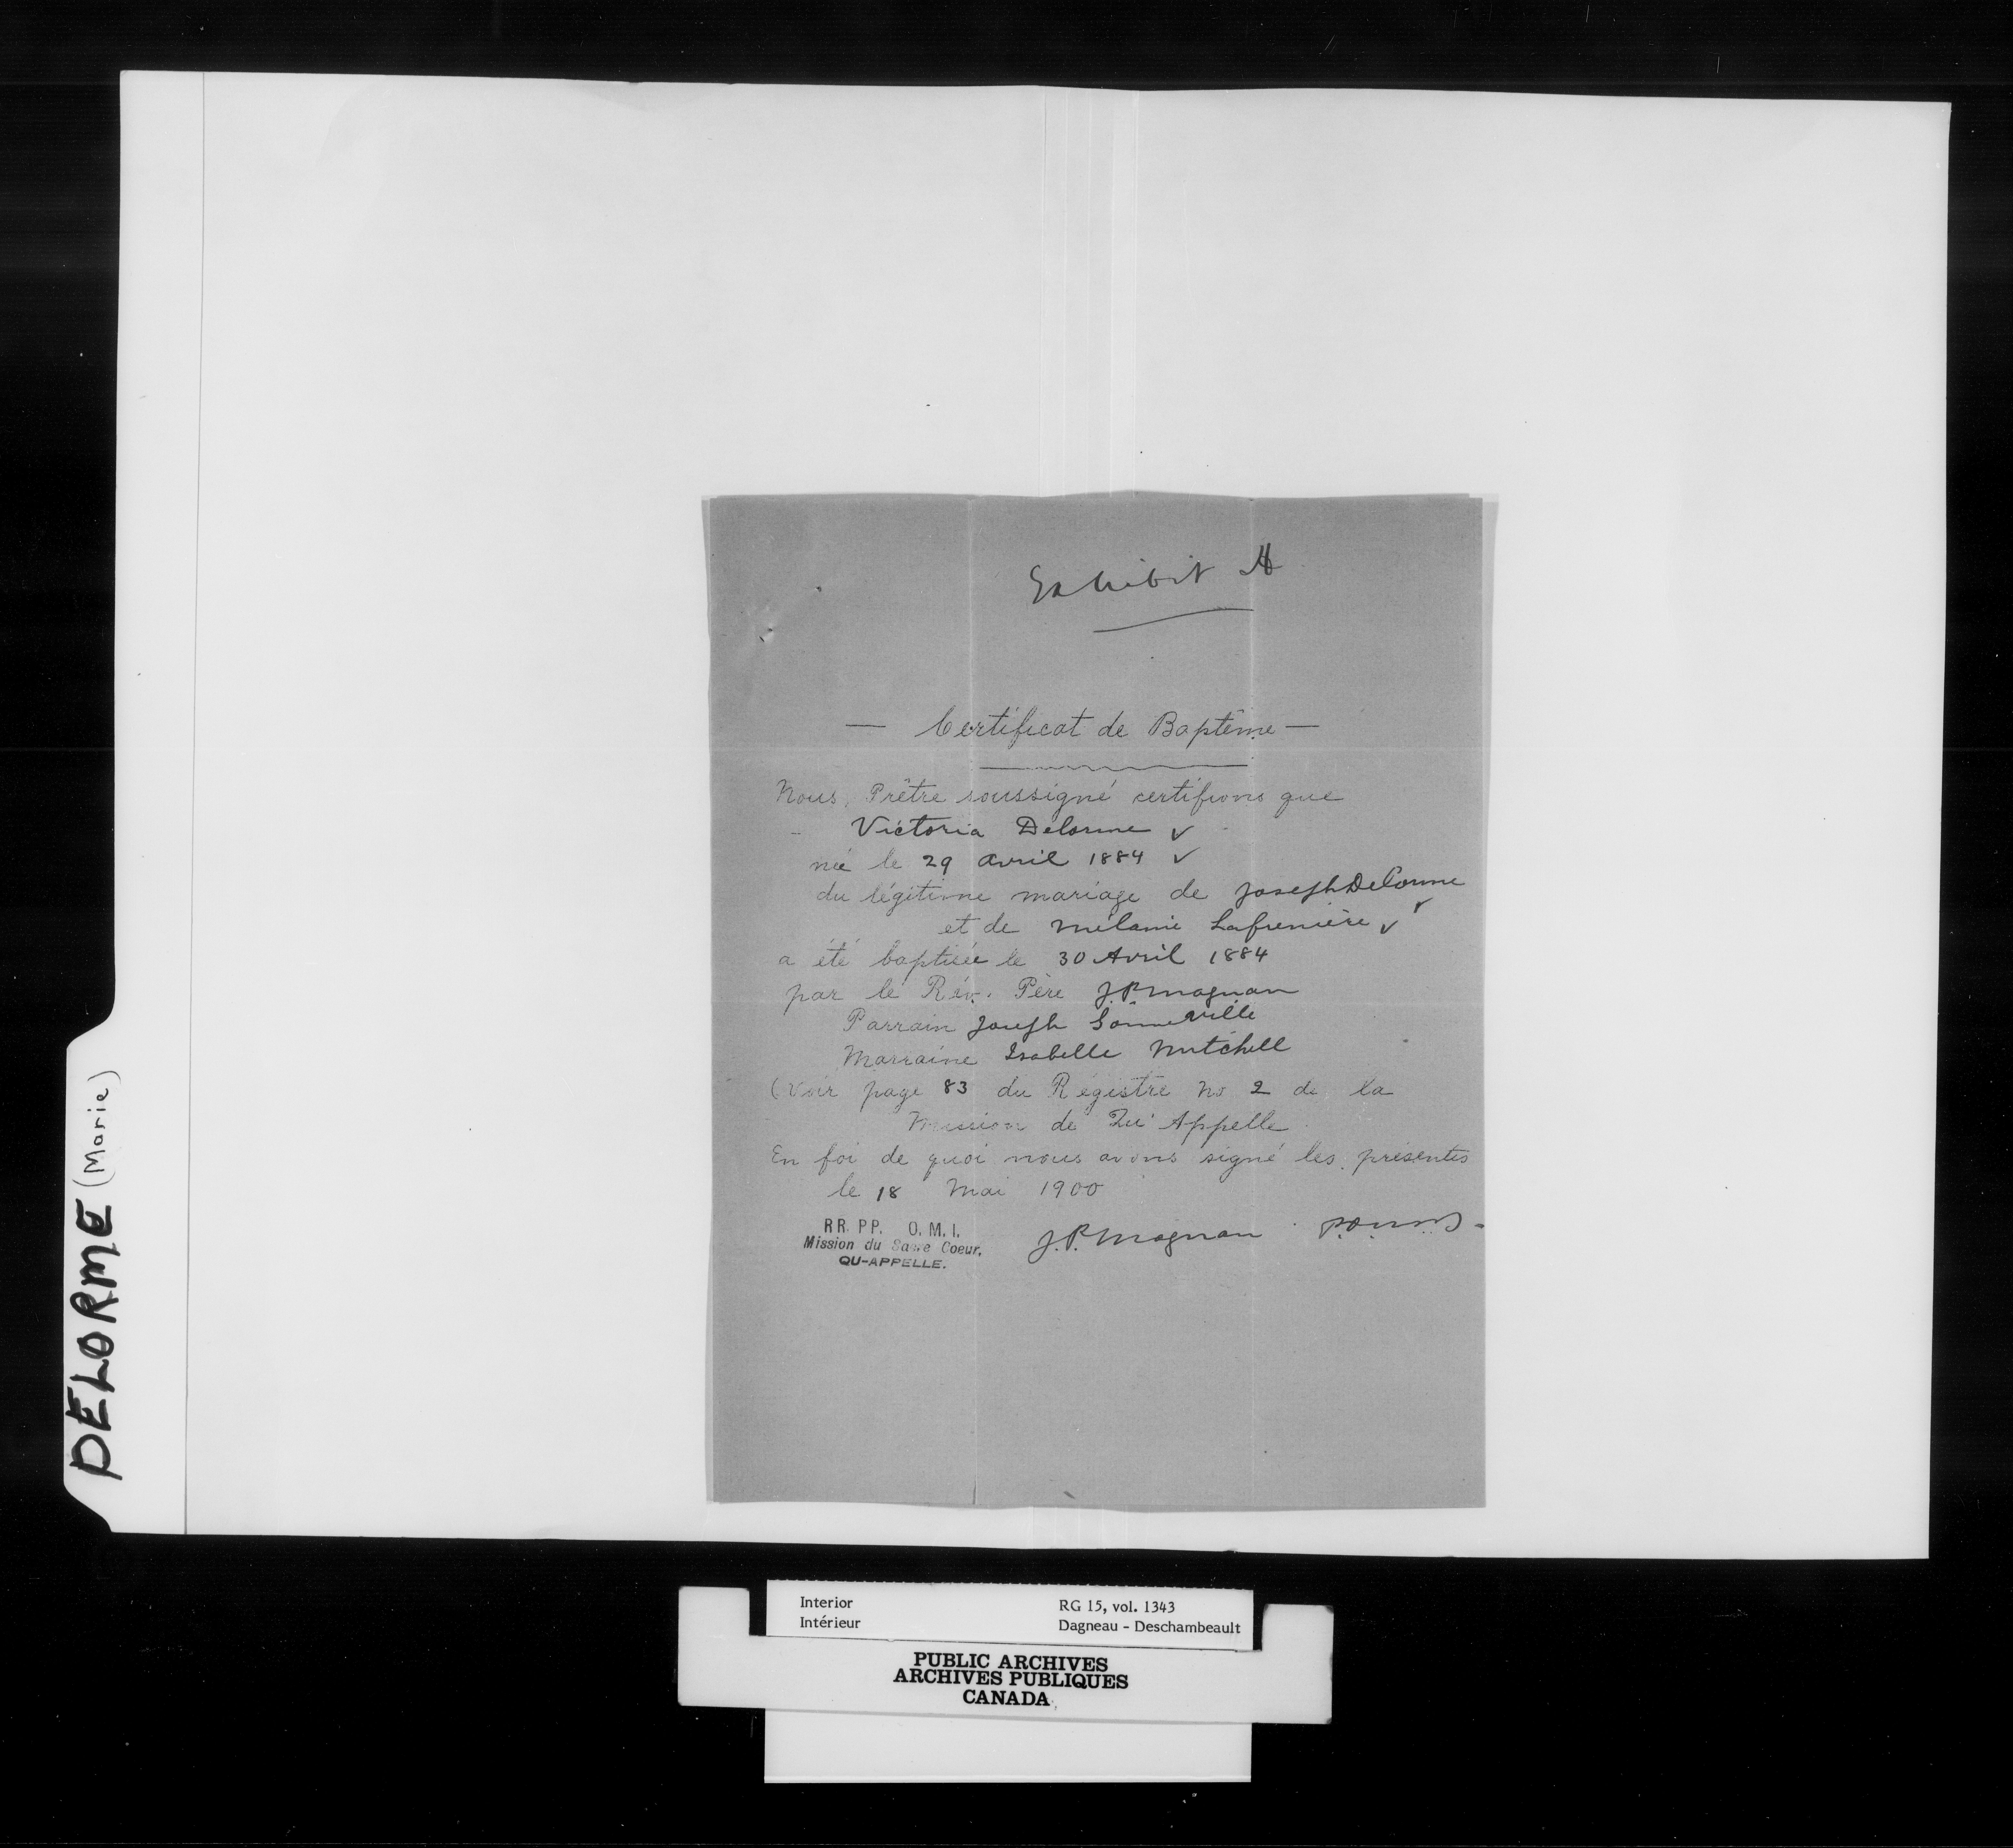 Exhibit A
— Certificat de Baptême —
Nous, Prêtre soussigné certifions que
Victoria Delorme ✓
née le 29 avril 1884 ✓
du légitime mariage de Joseph Delorme ✓
et de Mélanie Lafrenière ✓
a été baptisée le 30 Avril 1884
par le Rév. Père J.P. Magnan
Parrain Joseph
Marraine Isabelle Mitchell
(Voir page 83 du Régistre No 2 de la
Mission de Qu'Appelle
En foi de quoi nous avons signé les présentes
le 18 Mai 1900
RR. PP. O. M. I.
Mission du Sacre Coeur.
QU-APPELLE.
J.P. Magnan
DELORME (Marie)
Interior
Intérieur
RG 15, vol. 1343
Dagneau - Deschambeault
PUBLIC ARCHIVES
ARCHIVES PUBLIQUES
CANADA